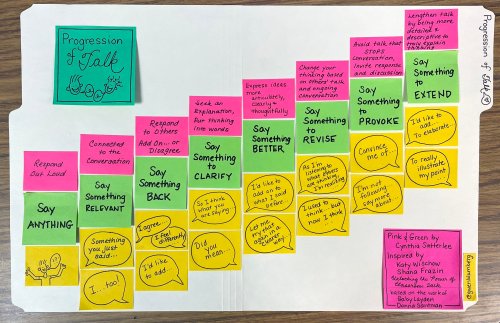 Progression
of
Talk
Progression of Talk
Respond
Out Loud
Say
ANYTHING
Connected to the
Conversation
Say
Something
RELEVANT
Something
you just
said...
I... too!
Respond
to Others
Add On... or
Disagree
Say
Something
BACK
I agree...
I feel
differently
I'd like
to add...
Seek an
Explanation,
Put thinking
into words
Say
Something
to
CLARIFY
So I think
what you
are saying
Did you
mean...
Express ideas
more
articulately,
clearly +
thoughtfully
Say
Something
BETTER
I'd like to
add on to
what I said
before
Let me
try that
again in a
clearer
way
Change your
thinking based
on others' talk
and ongoing
conversation
Say
Something
to
REVISE
As I'm
listening to
what others
are thinking,
I'm realizing
I used to
think... but
now I
think
Avoid talk that
STOPS
conversation,
Invite response
and discussion
Say
Something
to
PROVOKE
Convince
me of...
I'm not
following...
say more
about...
Lengthen talk
by being more
detailed &
descriptive to
truly explain
thinking
Say
Something
to
EXTEND
I'd like to
add...
To elaborate...
To really
illustrate
my point
Pink & Green by
Cynthia Satterlee
Inspired by
Katy Wischow
Shana Frazin
based on the work of
Gaby Layden
Donna Santman